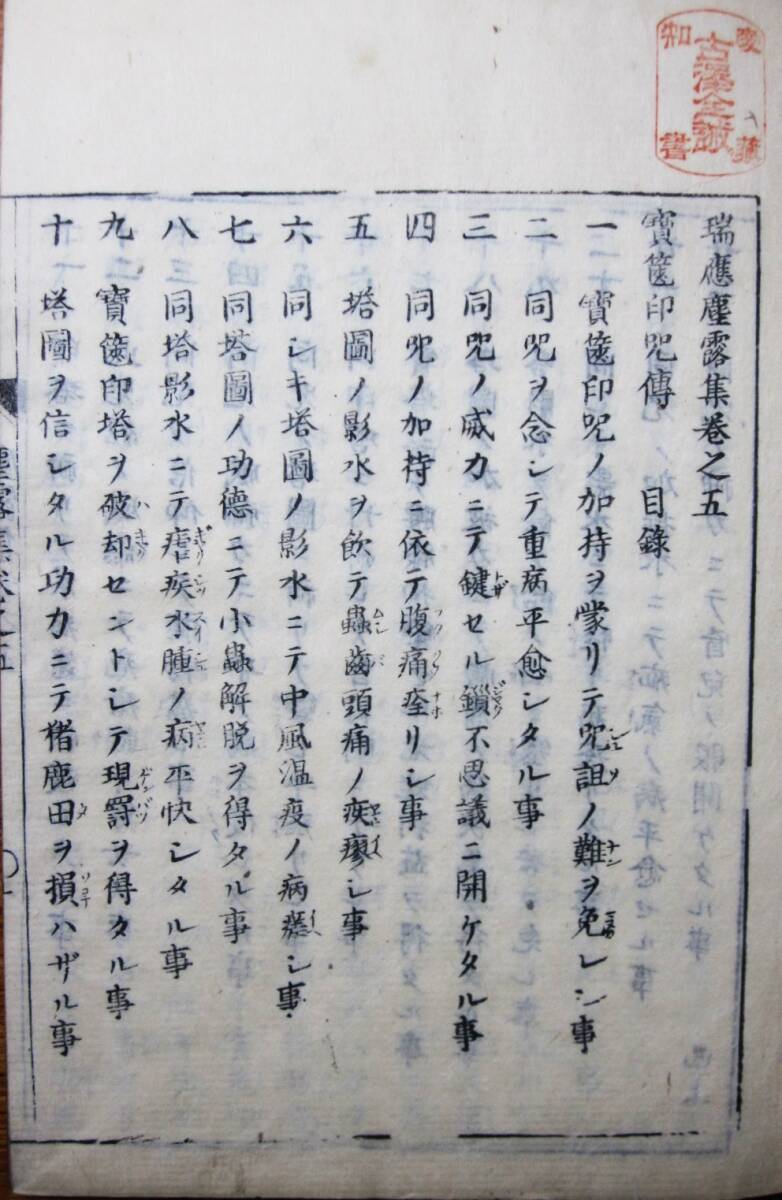 瑞應塵露集卷之五
寶篋印咒傳 目錄
一 寶篋印咒ノ加持ヲ蒙リテ咒詛ノ難ヲ免レシ事
二 同咒ヲ念シテ重病平愈シタル事
三 同咒ノ威力ニテ鍵セル鎖不思議ニ開ケタル事
四 同咒ノ加持ニ依テ腹痛痊リシ事
五 塔圖ノ影水ヲ飲テ蟲齒頭痛ノ疾瘳シ事
六 同シキ塔圖ノ影水ニテ中風温疫ノ病癒シ事
七 同塔圖ノ功德ニテ小蟲解脱ヲ得タル事
八 同塔影水ニテ瘧疾水腫ノ病平快シタル事
九 寶篋印塔ヲ破却セントシテ現罰ヲ得タル事
十 塔圖ヲ信シタル功力ニテ猪鹿田ヲ損ハザル事
塵露集卷之五